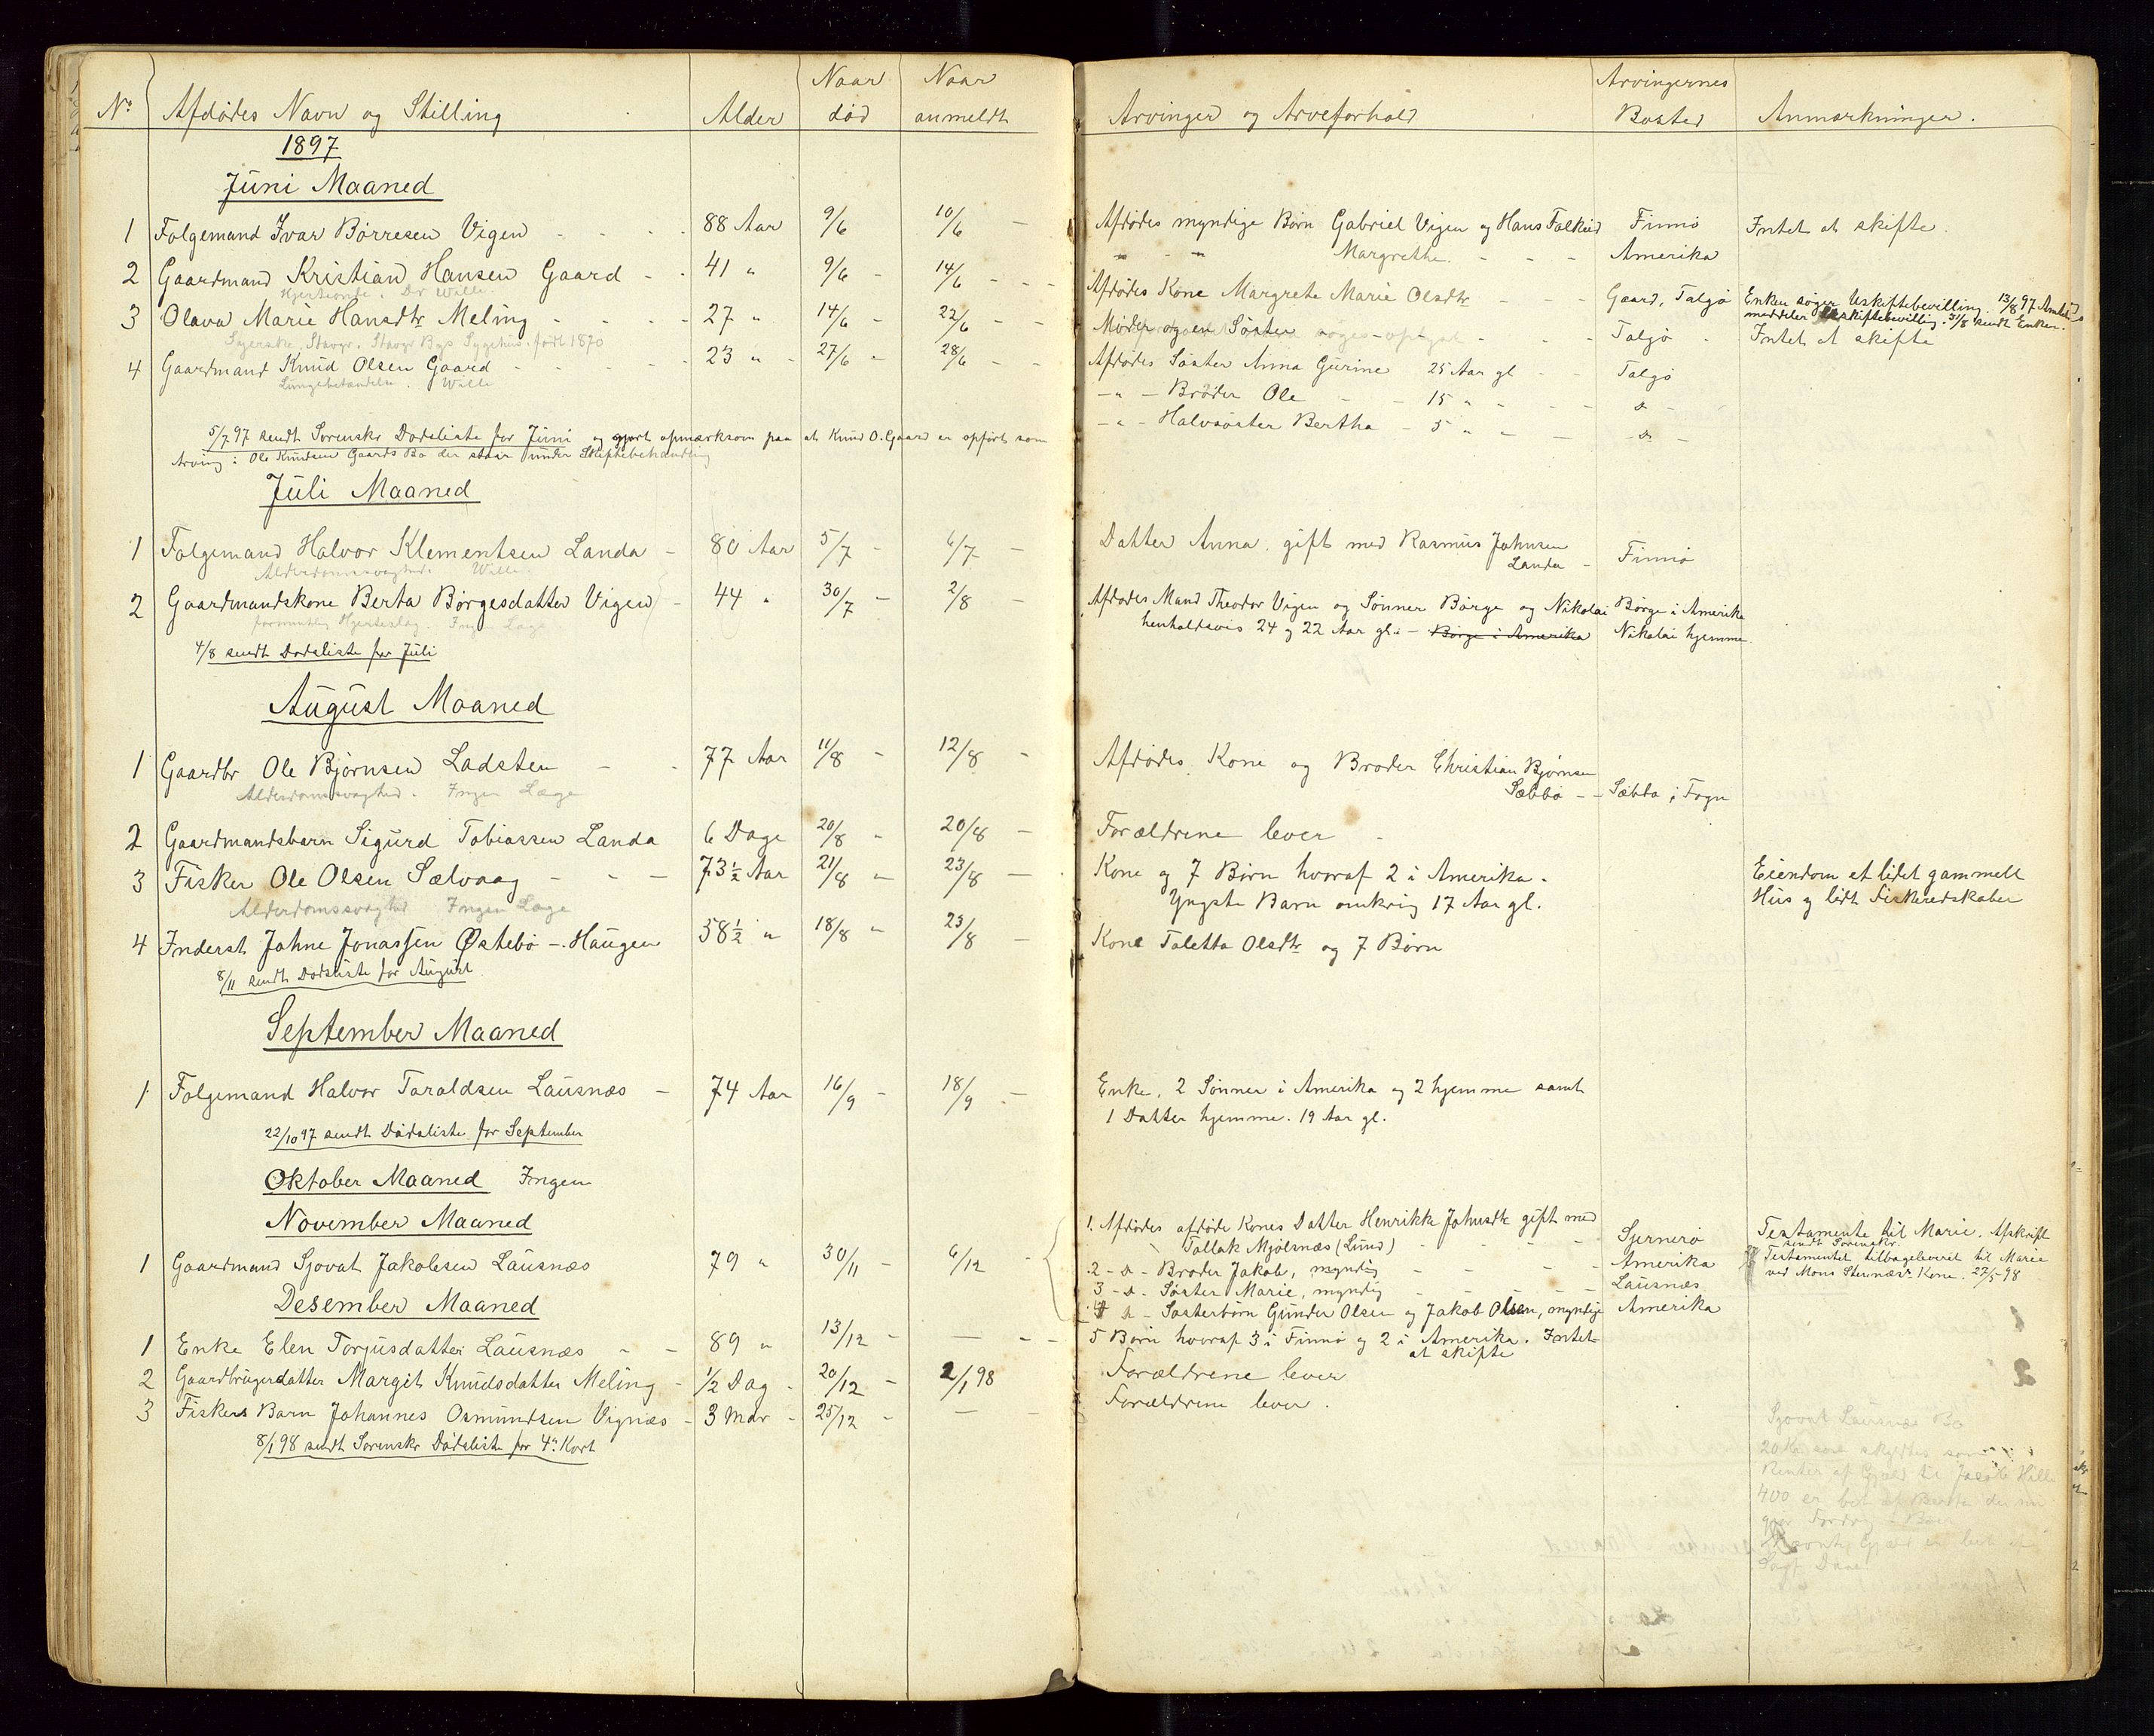 Nº Afdødes Navn og Stilling Alder Naar død Naar anmeldt
1897
Juni Maaned
1 Folgemand Ivar Børresen Vigen - - - 88 Aar 9/6 10/6 -
2 Gaardmand Kristian Hansen Gaard - - 41 " 9/6 - 14/6 - -
Hjerteonde. Dr Wille
3 Olava Marie Hansdtr Meling - - - - 27 " 14/6 - 22/6 - -
Syerske, Stavgr. Stavgr Bys Sygehus. født 1870
4 Gaardmand Knud Olsen Gaard - - - - 23 " - 27/6 - 28/6 - -
Lungebetændelse. Wille
5/7 97 sendt Sorenskr Dødsliste for Juni og gjort opmærksom paa at Knud O. Gaard er opført som
Arving i Ole Knudsen Gaards Bo der staar under Skiftebehandling
Juli Maaned
1 Folgemand Halvor Klementsen Landa - 80 Aar 5/7 - 6/7 -
Alderdomssvaghed. Wille
2 Gaardmandskone Berta Børgesdatter Vigen - 44 " 30/7 - 2/8 -
formentlig Hjerteslag. Ingen Læge
4/8 sendt Dødsliste for Juli
August Maaned
1 Gaardbr Ole Bjørnsen Ladsten - - 77 Aar 11/8 - 12/8 -
Alderdomssvaghed. Ingen Læge
2 Gaardmandsbarn Sigurd Tobiassen Landa 6 Dage 20/8 - 20/8 -
3 Fisker Ole Olsen Sælvaag - - - 73½ Aar 21/8 - 23/8 -
Alderdomssvaghed Ingen Læge
4 Inderst Johne Jonassen Østebø - Haugen 58½ " 18/8 " 23/8 -
8/11 sendt Dødsliste for August
September Maaned
1 Folgemand Halvor Taraldsen Lausnæs - 74 Aar 16/9 - 18/9 -
22/10 97 sendt Dødsliste for September
Oktober Maaned Ingen
November Maaned
1 Gaardmand Sjovat Jakobsen Lausnæs 79 " 30/11 - 6/12 -
Desember Maaned
1 Enke Elen Torjusdatter Lausnæs - - 89 " 13/12 - — - -
2 Gaardbrugerdatter Margit Knudsdatter Meling - ½ Dag - 20/12 - 2/1 98
3 Fiskers Barn Johannes Osmundsen Vignæs - 3 Mdr - 25/12 - — -
8/1 98 sendt Sorenskr Dødsliste for 4de Kvrt
Arvinger og Arveforhold Arvingernes Bosted Anmærkninger.
Afdødes myndige Børn Gabriel Vigen og Hans Falkeid Finnø Intet at skifte.
" - " Margrethe. - - - Amerika
Afdødes Kone Margrete Marie Olsdtr - - - Gaard, Talgø Enken søger Uskiftebevilling. 13/8 97 Amtet
meddeler Uskiftebevillig. 31/8 sendt Enken.
Moder og en Søster - - - Talgø - Intet at skifte
Afdødes Søster Anna Gurine 25 Aar gl - - Talgø
- " - Broder Ole - - 15 " - - - d -
- " - Halvsøster Bertha - 5 " - - - d -
Datter Anna. gift med Rasmus Johnsen
Landa - Finnø
Afdødes Mand Theodor Vigen og Sønner Børge og Nikolai Børge i Amerika
henholdsvis 24 og 22 Aar gl. - Børge i Amerika Nikolai hjemme
Afdødes Kone og Broder Christian Bjørnsen
Sæbbø - - Sæbbø i Fogn
Forældrene lever -
Kone og 7 Børn hvoraf 2 i Amerika. Eiendom et lidet gammelt
Yngste Barn omkring 17 Aar gl. Hus og lidt Fiskeredskaber
Kone Taletta Olsdtr og 7 Børn
Enke, 2 Sønner i Amerika og 2 hjemme samt
1 Datter hjemme. 19 Aar gl.
1. Afdødes afdøde Kones Datter Henrikke Johnsdtr gift med
Tollak Mjølsnæs (Lund) - - - Sjernerø Testamente til Marie. Afskrift
sendt Sorenskr.
2 - d - Broder Jakob, myndig - - - Amerika Testamentet tilbageleveret til Marie
ved Mons Steinnæs' Kone. 27/5 98
3 - d. - Søster Marie, myndig - - - Lausnæs
4 d - Søsterbørn Gunder Olsen og Jakob Olsen, myndige Amerika
5 Børn hvoraf 3 i Finnø og 2 i Amerika. Intet
at skifte
Forældrene lever
Forældrene lever.
Sjovat Lausnæs Bo
20 Kr som skyldtes som
Renter af Gjæld til Jacob Hille
400 er bet af